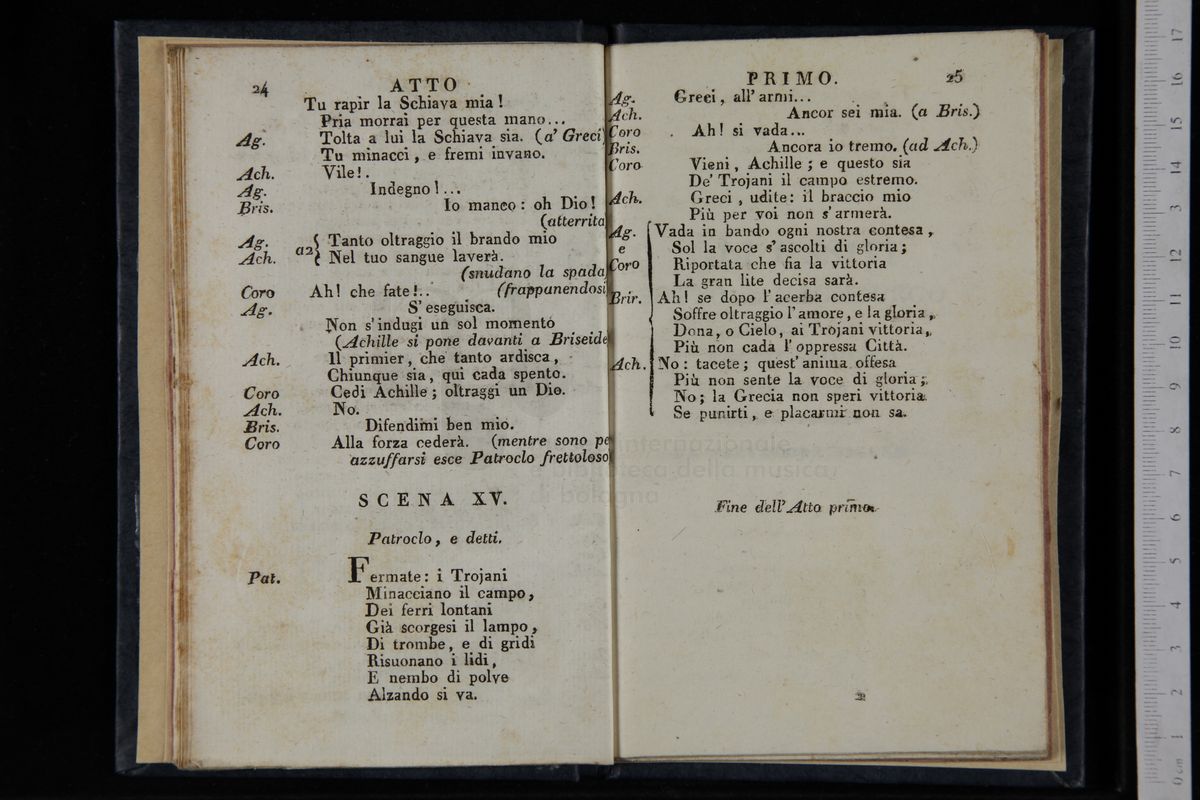 24 ATTO
Tu rapir la Schiava mia!
Pria morrai per questa mano...
Ag. Tolta a lui la Schiava sia. (a' Greci)
Tu minacci, e fremi invano.
Ach. Vile!.
Ag. Indegno!...
Bris. Io manco: oh Dio!
(atterrita
Ag. Tanto oltraggio il brando mio
Ach. a2 Nel tuo sangue laverà.
(snudano la spada
Coro Ah! che fate!.. (frappunendosi
Ag. S'eseguisca.
Non s'indugi un sol momento
(Achille si pone davanti a Briseide
Ach. Il primier, che tanto ardisca,
Chiunque sia, qui cada spento.
Coro Cedi Achille; oltraggi un Dio.
Ach. No.
Bris. Difendimi ben mio.
Coro Alla forza cederà. (mentre sono pe
azzuffarsi esce Patroclo frettoloso
SCENA XV.
Patroclo, e detti.
Pat. Fermate: i Trojani
Minacciano il campo,
Dei ferri lontani
Già scorgesi il lampo,
Di trombe, e di gridi
Risuonano i lidi,
E nembo di polve
Alzando si va.
PRIMO. 25
Ag. Greci, all'armi...
Ach. Ancor sei mia. (a Bris.)
Coro Ah! si vada...
Bris. Ancora io tremo. (ad Ach.)
Coro Vieni, Achille; e questo sia
De' Trojani il campo estremo.
Ach. Greci, udite: il braccio mio
Più per voi non s'armerà.
Ag. Vada in bando ogni nostra contesa,
e Sol la voce s'ascolti di gloria;
Coro Riportata che fia la vittoria
La gran lite decisa sarà.
Brir. Ah! se dopo l'acerba contesa
Soffre oltraggio l'amore, e la gloria,
Dona, o Cielo, ai Trojani vittoria,
Più non cada l'oppressa Città.
Ach. No: tacete; quest'anima offesa
Più non sente la voce di gloria;
No; la Grecia non speri vittoria.
Se punirti, e placarmi non sa.
internazionale
e biblioteca della musica
di bologna
Fine dell'Atto primo.